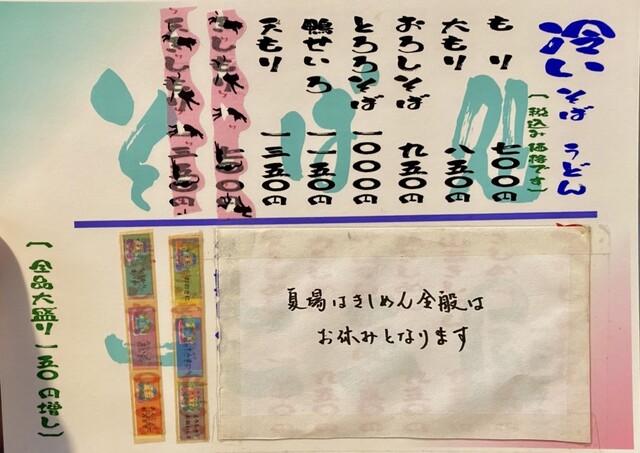 冷いそば うどん
(税込み価格です)
もり 七〇〇円
大もり 八五〇円
おろしそば 九五〇円
とろろそば 一〇〇〇円
鴨せいろ 一一五〇円
天もり 一三五〇円
七〇〇円
一三五〇円
夏場はきしめん全般は
お休みとなります
(全品大盛り一五〇円増し)